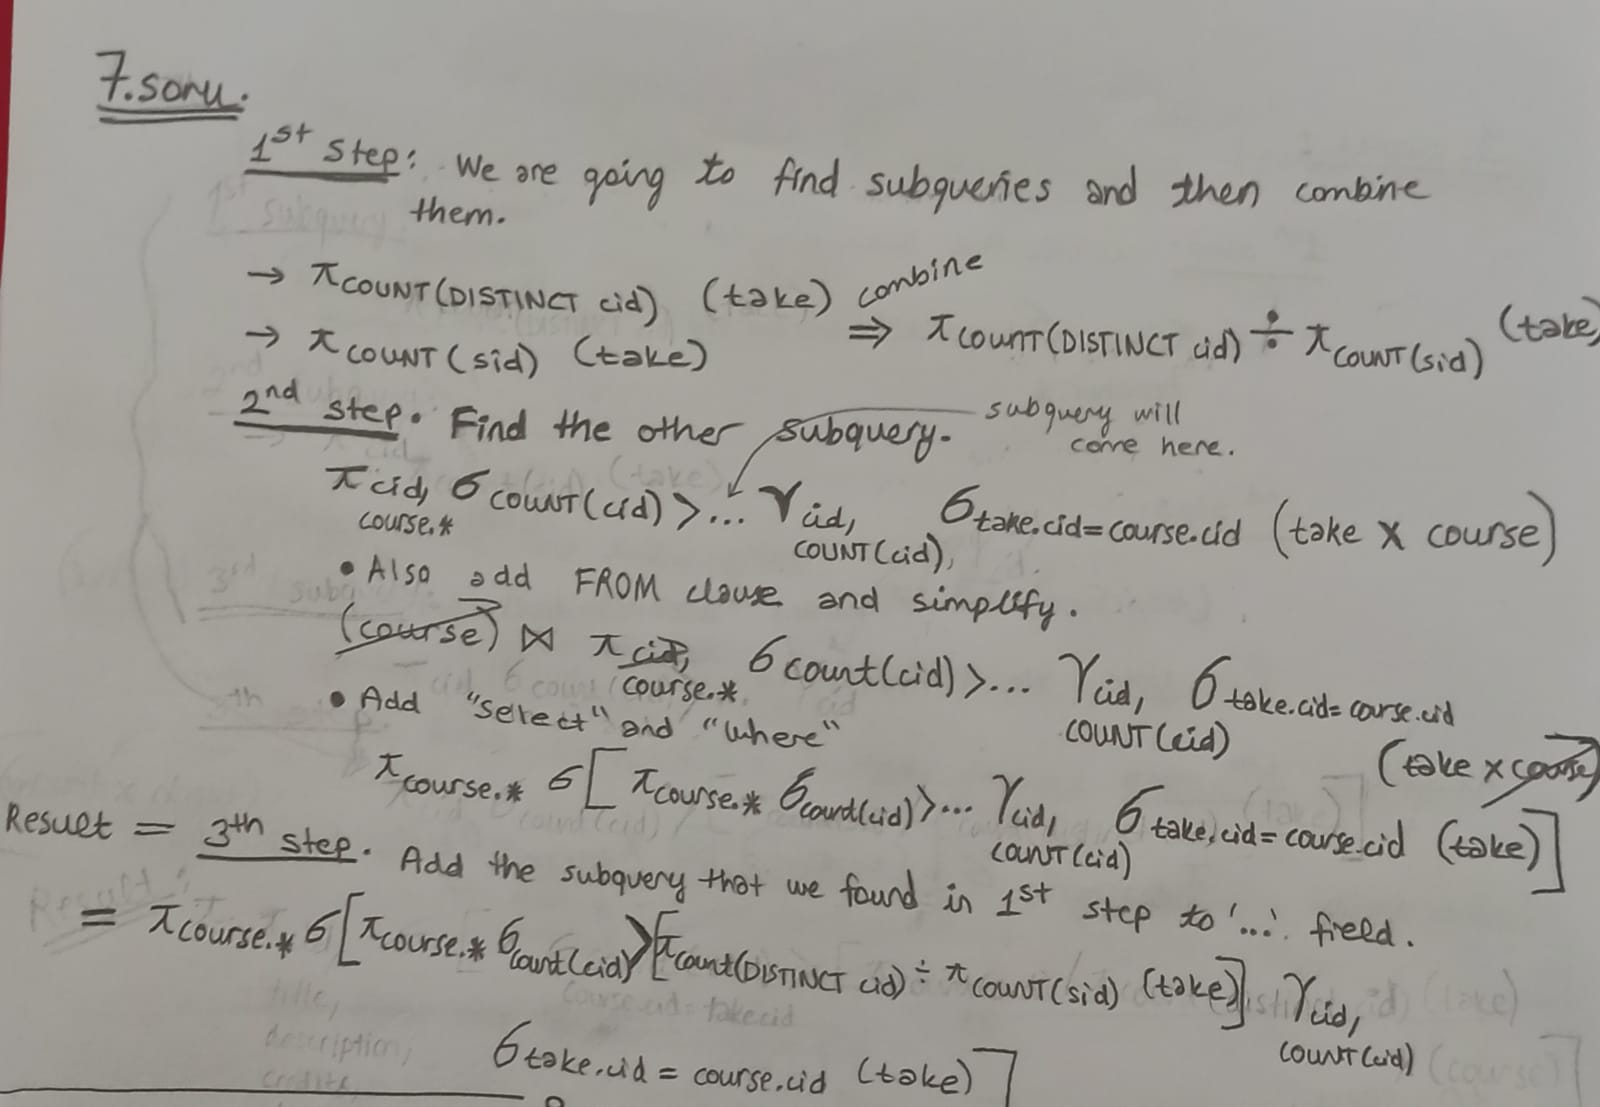 7.soru.
1st step: We are going to find subqueries and then combine
them.
→ π COUNT(DISTINCT cid) (take) combine
→ π COUNT(sid) (take) ⇒ π COUNT(DISTINCT cid) ÷ π COUNT(sid) (take)
2nd step. Find the other subquery. subquery will
come here.
π cid, course.* σ COUNT(cid) >... γ cid, COUNT(cid), σ take.cid=course.cid (take X course)
• Also add FROM clause and simplify.
(course) ⋈ π cid, course.* σ count(cid) >... γ cid, COUNT(cid) σ take.cid=course.cid
(take x course)
• Add "select" and "where"
π course.* σ [ π course.* σ count(cid) >... γ cid, COUNT(cid) σ take.cid=course.cid (take) ]
Result = 3th step. Add the subquery that we found in 1st step to '...' field.
= π course.* σ [ π course.* σ count(cid) > [ π count(DISTINCT cid) ÷ π COUNT(sid) (take) ] γ cid, COUNT(cid)
σ take.cid = course.cid (take) ]